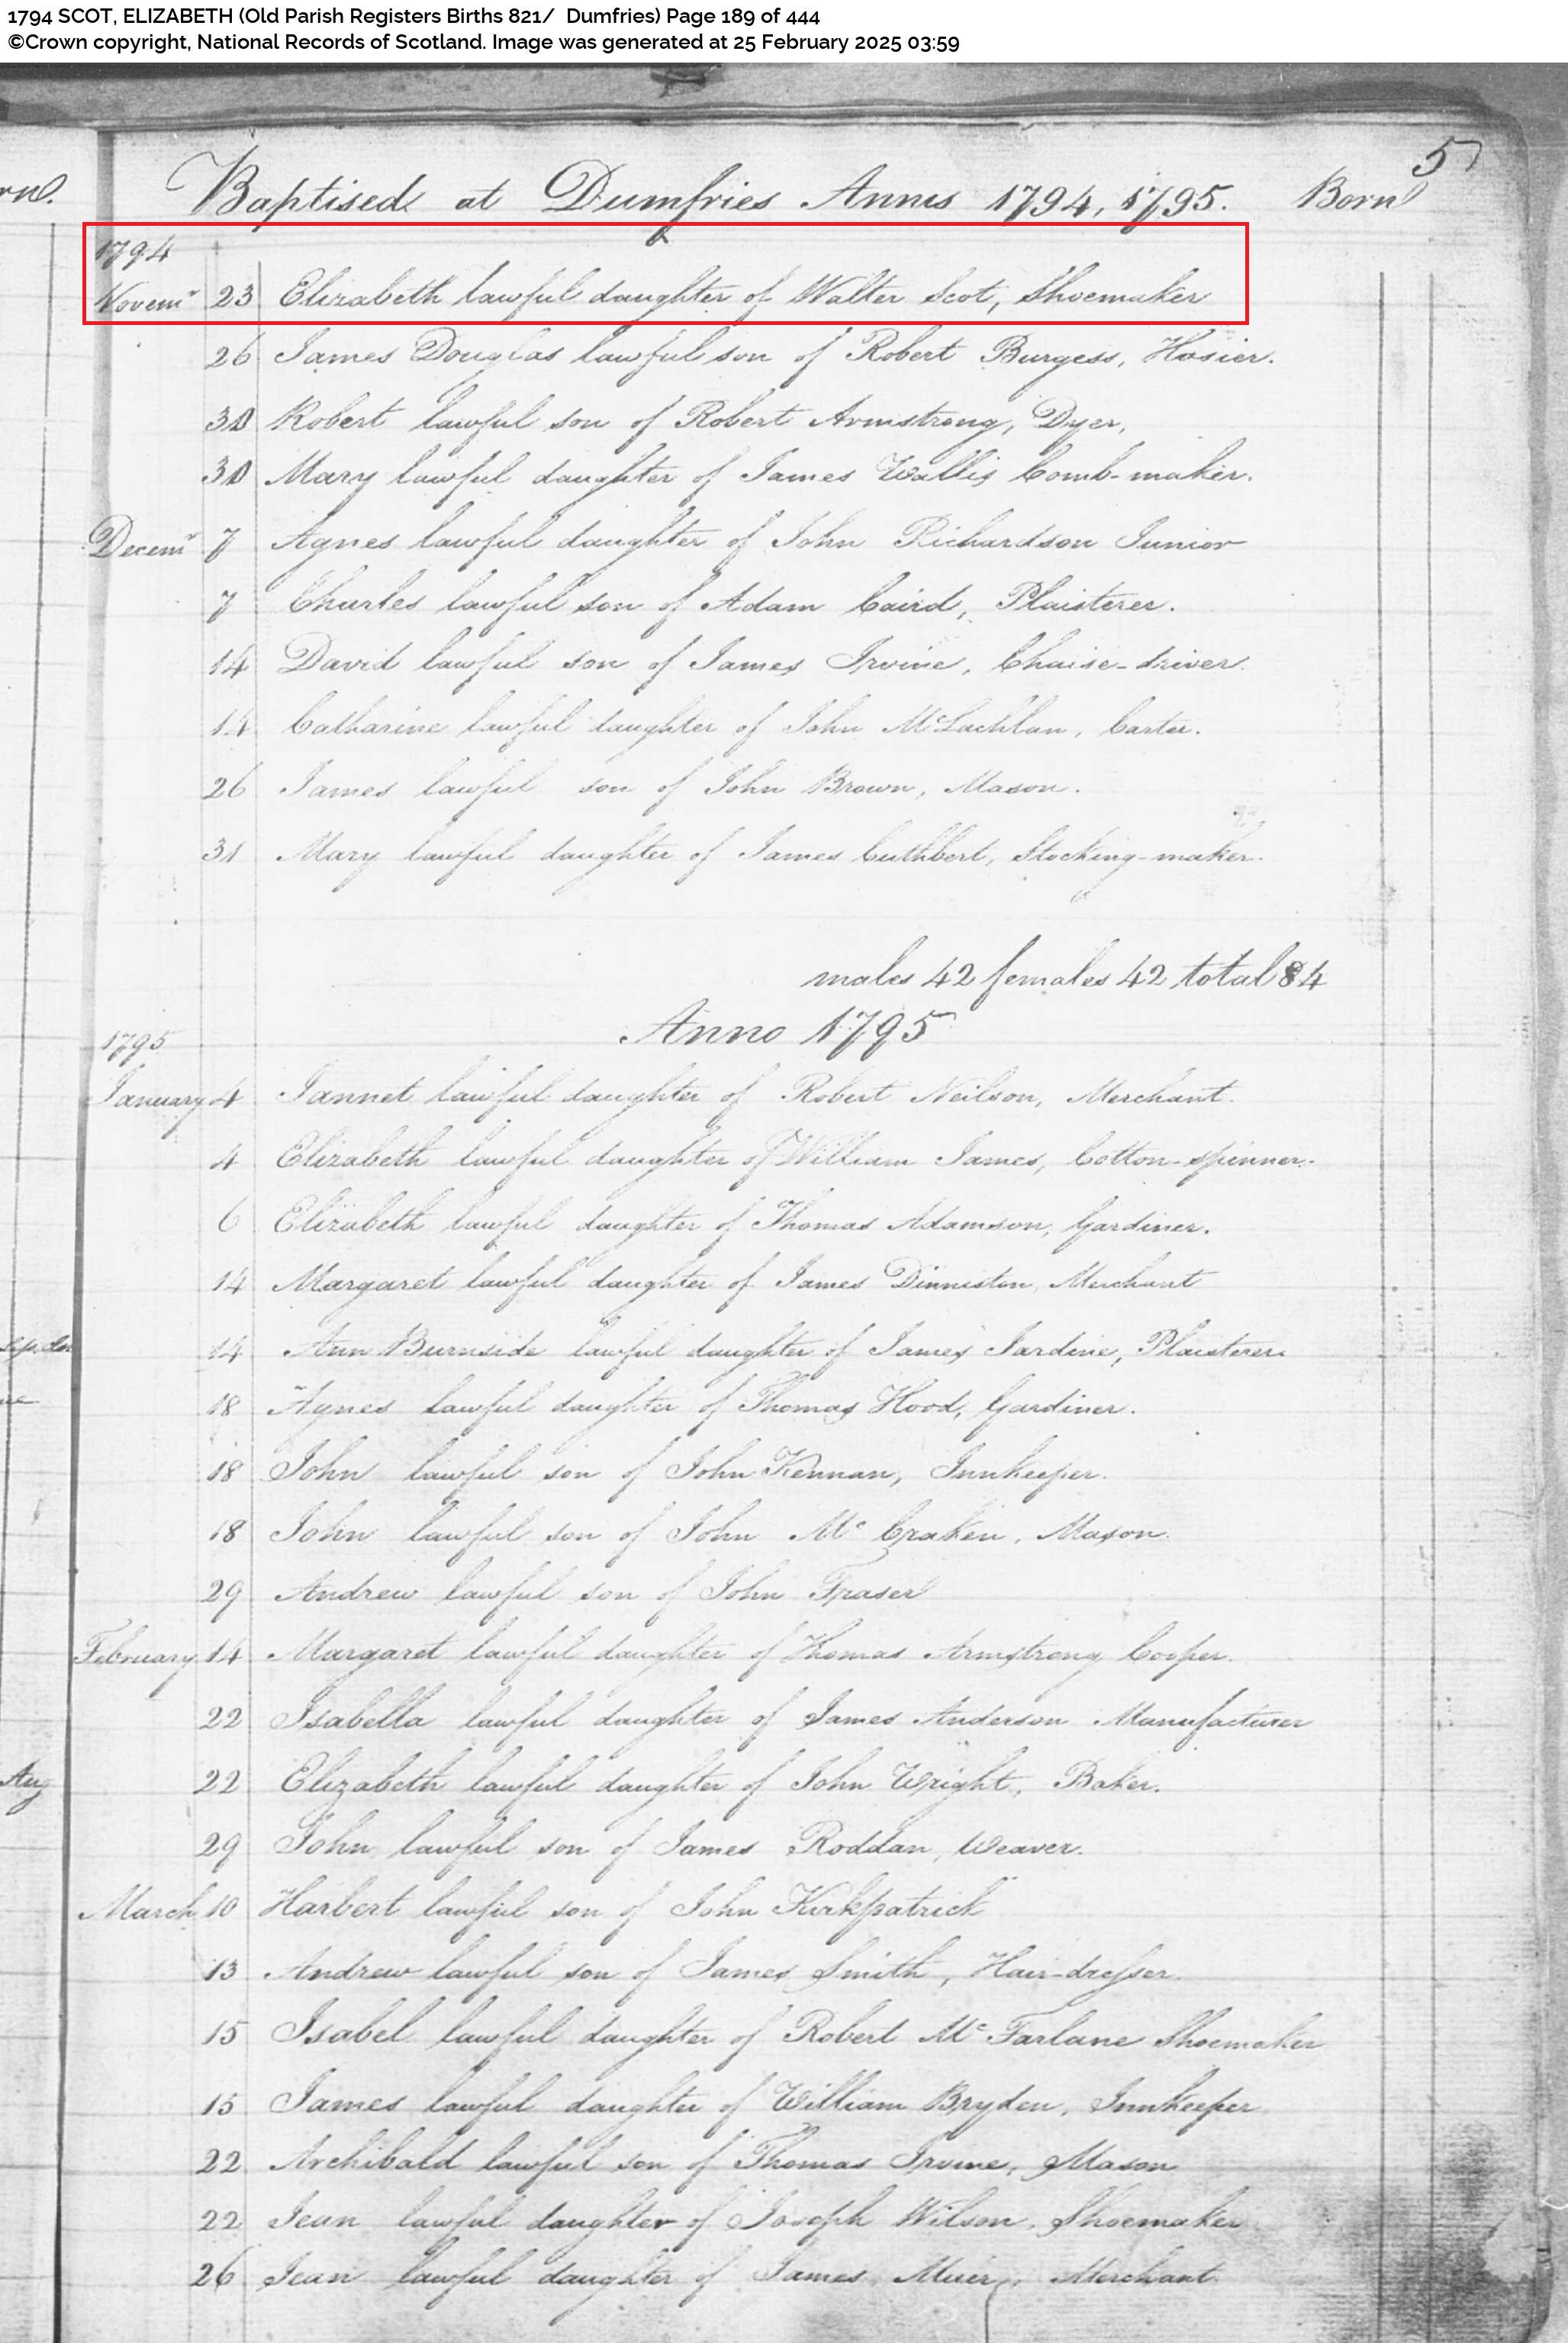 1794 SCOT, ELIZABETH (Old Parish Registers Births 821/ Dumfries) Page 189 of 444
©Crown copyright, National Records of Scotland. Image was generated at 25 February 2025 03:59
5
Baptised at Dumfries Annis 1794, 1795. Born
1794
Novemr 23 Elizabeth lawful daughter of Walter Scot, Shoemaker
26 James Douglas lawful son of Robert Burgess, Hosier.
30 Robert lawful son of Robert Armstrong, Dyer,
30 Mary lawful daughter of James Wallis Comb-maker.
Decemr 7 Agnes lawful daughter of John Richardson Junior
7 Charles lawful son of Adam Caird, Plaisterer.
14 David lawful son of James Irvine, Chaise-driver.
14 Catharine lawful daughter of John McLachlan, Carter.
26 James lawful son of John Brown, Mason.
31 Mary lawful daughter of James Cuthbert, Stocking-maker.
males 42 females 42 total 84
Anno 1795
1795
January 4 Jannet lawful daughter of Robert Neilson, Merchant.
4 Elizabeth lawful daughter of William James, Cotton-spinner.
6 Elizabeth lawful daughter of Thomas Adamson, Gardiner.
14 Margaret lawful daughter of James Dinniston, Merchant
14 Ann Burnside lawful daughter of James Jardine, Plaisterer.
18 Agnes lawful daughter of Thomas Hood, Gardiner.
18 John lawful son of John Kennan, Innkeeper.
18 John lawful son of John Mc Craken, Mason.
29 Andrew lawful son of John Fraser
February 14 Margaret lawful daughter of Thomas Armstrong Cooper.
22 Isabella lawful daughter of James Anderson Manufacturer
Aug
22 Elizabeth lawful daughter of John Wright, Baker.
29 John lawful son of James Roddan, Weaver.
March 10 Harbert lawful son of John Kirkpatrick
13 Andrew lawful son of James Smith, Hair-dresser.
15 Isabel lawful daughter of Robert Mc Farlane Shoemaker
15 James lawful daughter of William Bryden, Innkeeper
22 Archibald lawful son of Thomas Irvine, Mason
22 Jean lawful daughter of Joseph Wilson, Shoemaker
26 Jean lawful daughter of James Muir, Merchant.